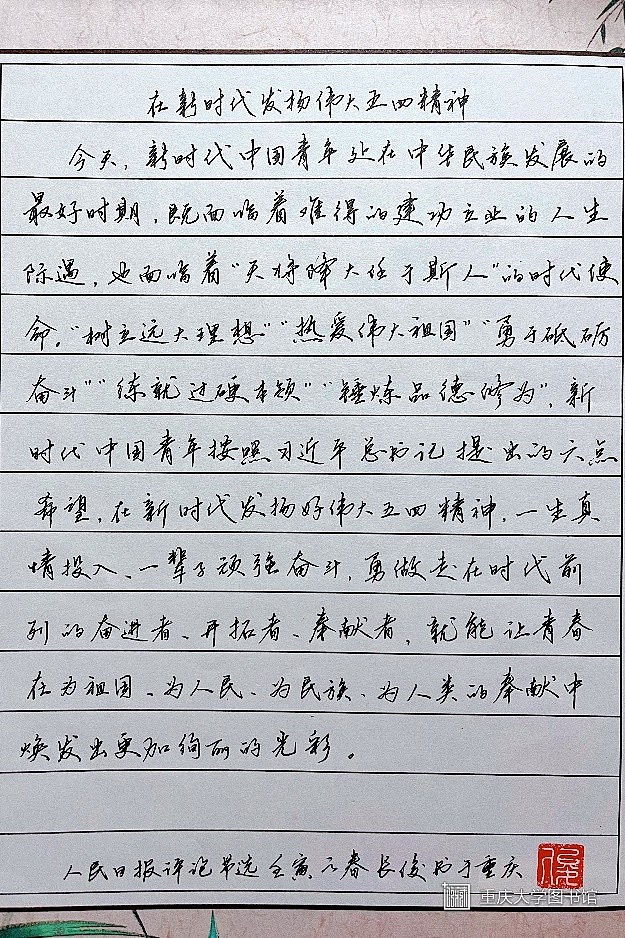 在新时代发扬伟大五四精神
今天，新时代中国青年处在中华民族发展的
最好时期，既面临着难得的建功立业的人生
际遇，也面临着“天将降大任于斯人”的时代使
命。“树立远大理想”“热爱伟大祖国”“勇于砥砺
奋斗”“练就过硬本领”“锤炼品德修为”，新
时代中国青年按照习近平总书记提出的六点
希望，在新时代发扬好伟大五四精神，一生真
情投入、一辈子顽强奋斗，勇做走在时代前
列的奋进者、开拓者、奉献者，就能让青春
在为祖国、为人民、为民族、为人类的奉献中
焕发出更加绚丽的光彩。
人民日报评论节选 壬寅之春长俊书于重庆
俊
重庆大学图书馆